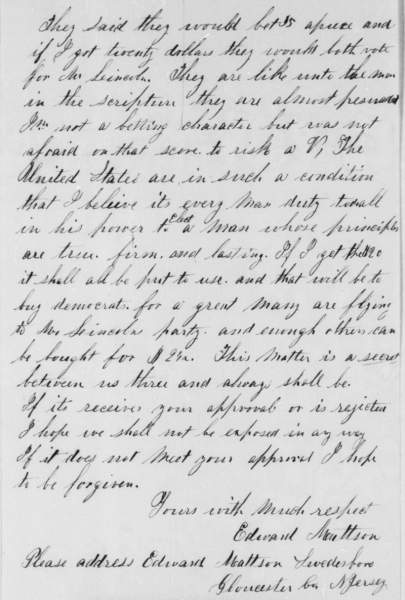 They said they would bet $5 apiece and
if I got twenty dollars they would both vote
for Mr Lincoln. They are like unto the man
in the scripture they are almost persuaded
I am not a betting character but was not
afraid on that score to risk a V, The
United States are in such a condition
that I beleive its every man duty to all
in his power to Elect a man whose principles
are true. firm. and lasting. If I get the $20
it shall all be put to use. and that will be to
buy democrats. for a great many are flying
to Mr Lincolns party. and enough others can
be bought for $ This matter is a secret
between us three and always shall be.
If its receives your approval or is rejected
I hope we shall not be exposed in any way
If it does not meet your approval I hope
to be forgiven.
Yours with much respect
Edward Mattson
Please address Edward Mattson Swedesboro
Gloucester Co NJersey